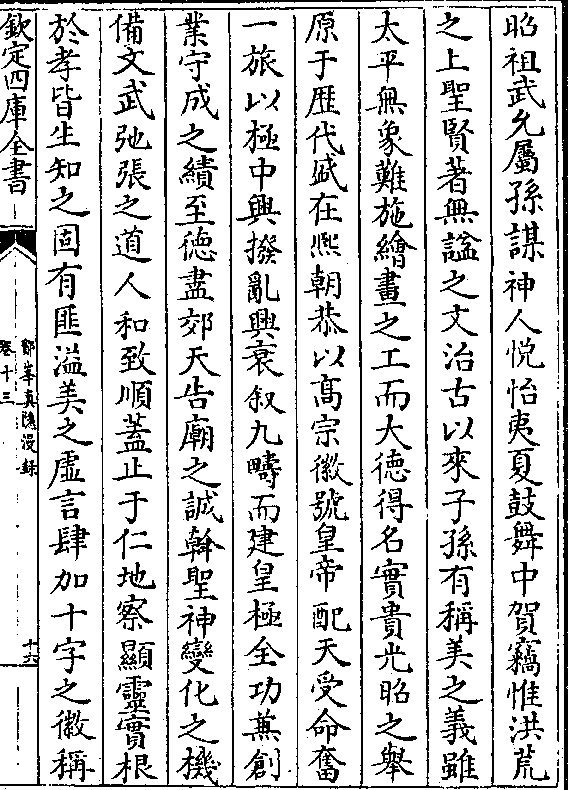 昭祖武允屬孫謀神人悅怡夷夏鼓舞中賀竊惟洪荒
之上聖賢著無諡之文治古以來子孫有稱美之義雖
太平無象難施繪畫之工而大徳得名實貴光昭之舉
原于歴代盛在熈朝恭以髙宗徽號皇帝配天受命奮
一旅以極中興撥亂興衰叙九疇而建皇極全功兼創
業守成之績至徳盡郊天告廟之誠斡聖神變化之機
備文武弛張之道人和致順蓋止于仁地察顯靈實根
於孝皆生知之固有匪溢美之虛言肆加十字之徽稱
欽定四庫全書
鄮峯真隱漫録
卷十三
十六